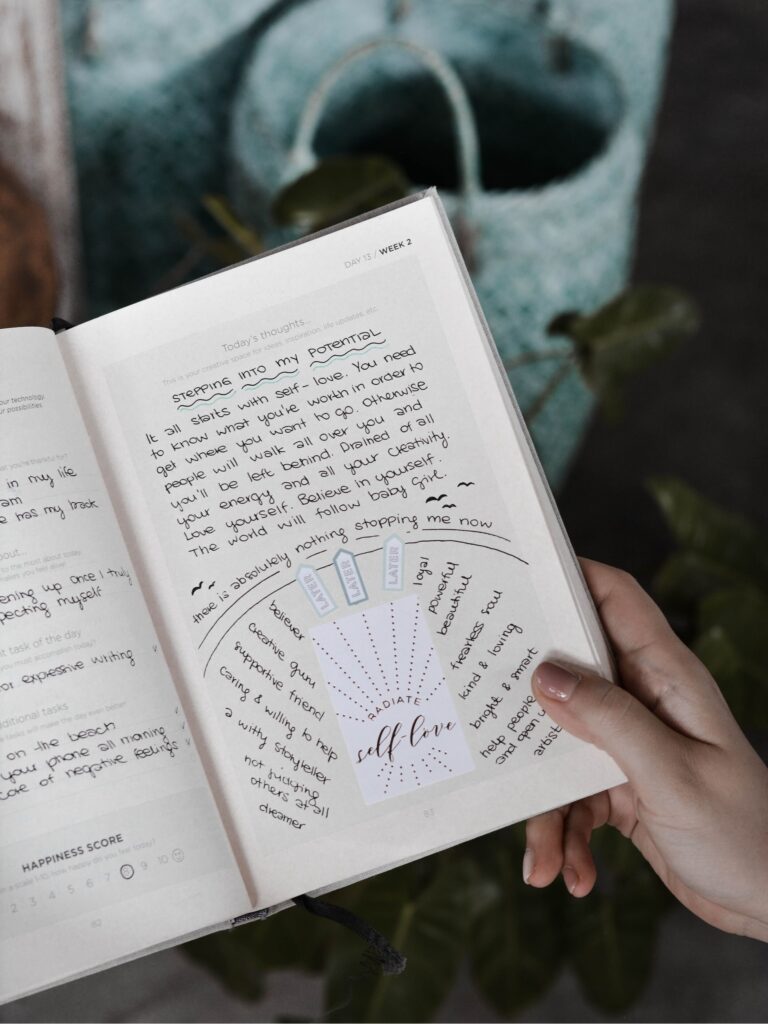 our technology
ur possibilities.
what you're thankful for?
in my life
am
e has my back
bout...
to the most about today
makes you feel alive?
ening up once I truly
pecting myself
t task of the day
you must accomplish today?
or expressive writing
dditional tasks
tasks will make the day even better?
on the beach
your phone all morning
core of negative feelings
HAPPINESS SCORE
n a scale 1-10, how happy do you feel today?
2 3 4 5 6 7 9 10
82
DAY 13 / WEEK 2
Today's thoughts...
This is your creative space for ideas, inspiration, life updates, etc.
STEPPING INTO MY POTENTIAL
It all starts with self-love. You need
to know what you're worth in order to
get where you want to go. Otherwise
people will walk all over you and
you'll be left behind. Drained of all
your energy and all your creativity.
Love yourself. Believe in yourself.
The world will follow baby girl.
there is absolutely nothing stopping me now
LATER
LATER
LATER
believer
creative guru
supportive friend
caring & willing to help
a witty storyteller
not judging
others at all
dreamer
RADIATE
self-love
loyal
powerful
beautiful
fearless soul
kind & loving
bright & smart
help people
and open u
artist
83